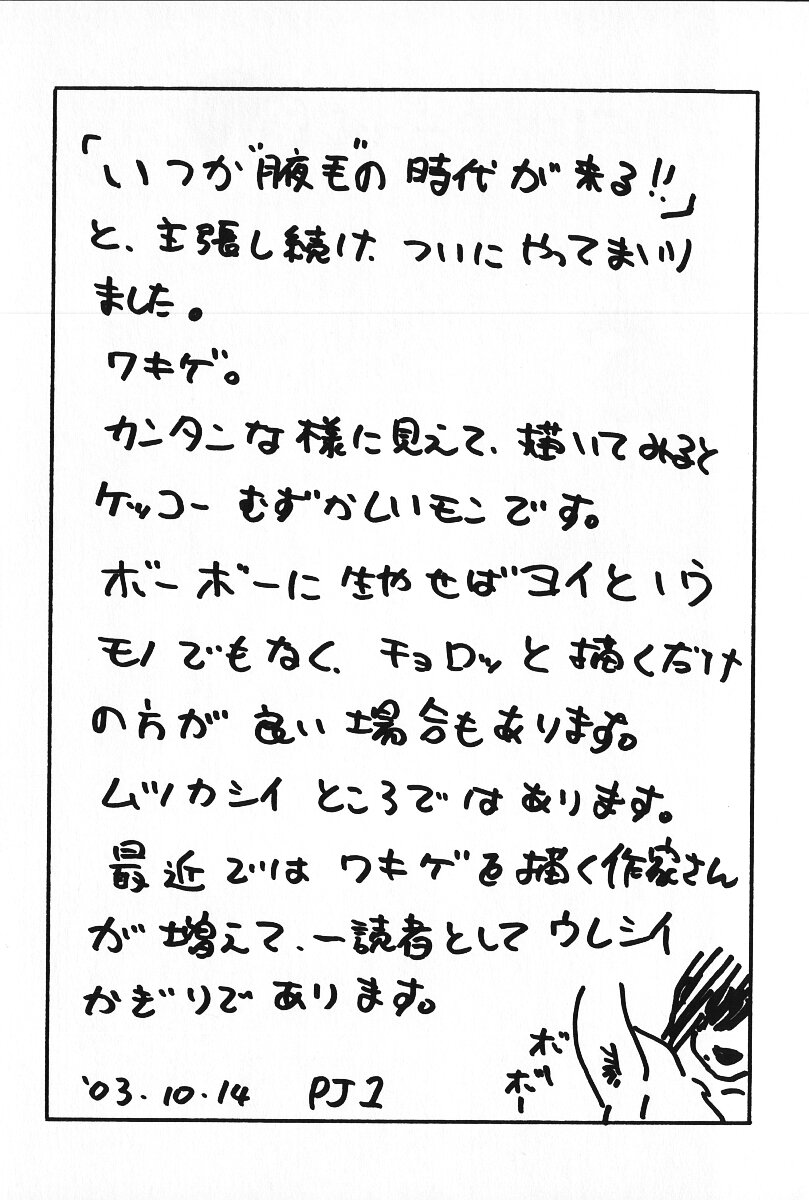 「いつか腋毛の時代が来る!!」
と、主張し続け、ついにやってまいり
ました。
ワキゲ。
カンタンな様に見えて、描いてみると
ケッコー むずかしいモンです。
ボーボーに生やせばヨイという
モノでもなく、チョロッと描くだけ
の方が良い場合もあります。
ムツカシイところではあります。
最近ではワキゲを描く作家さん
が増えて、一読者としてウレシイ
かぎりであります。
ボ
ボー
'03.10.14 PJ1